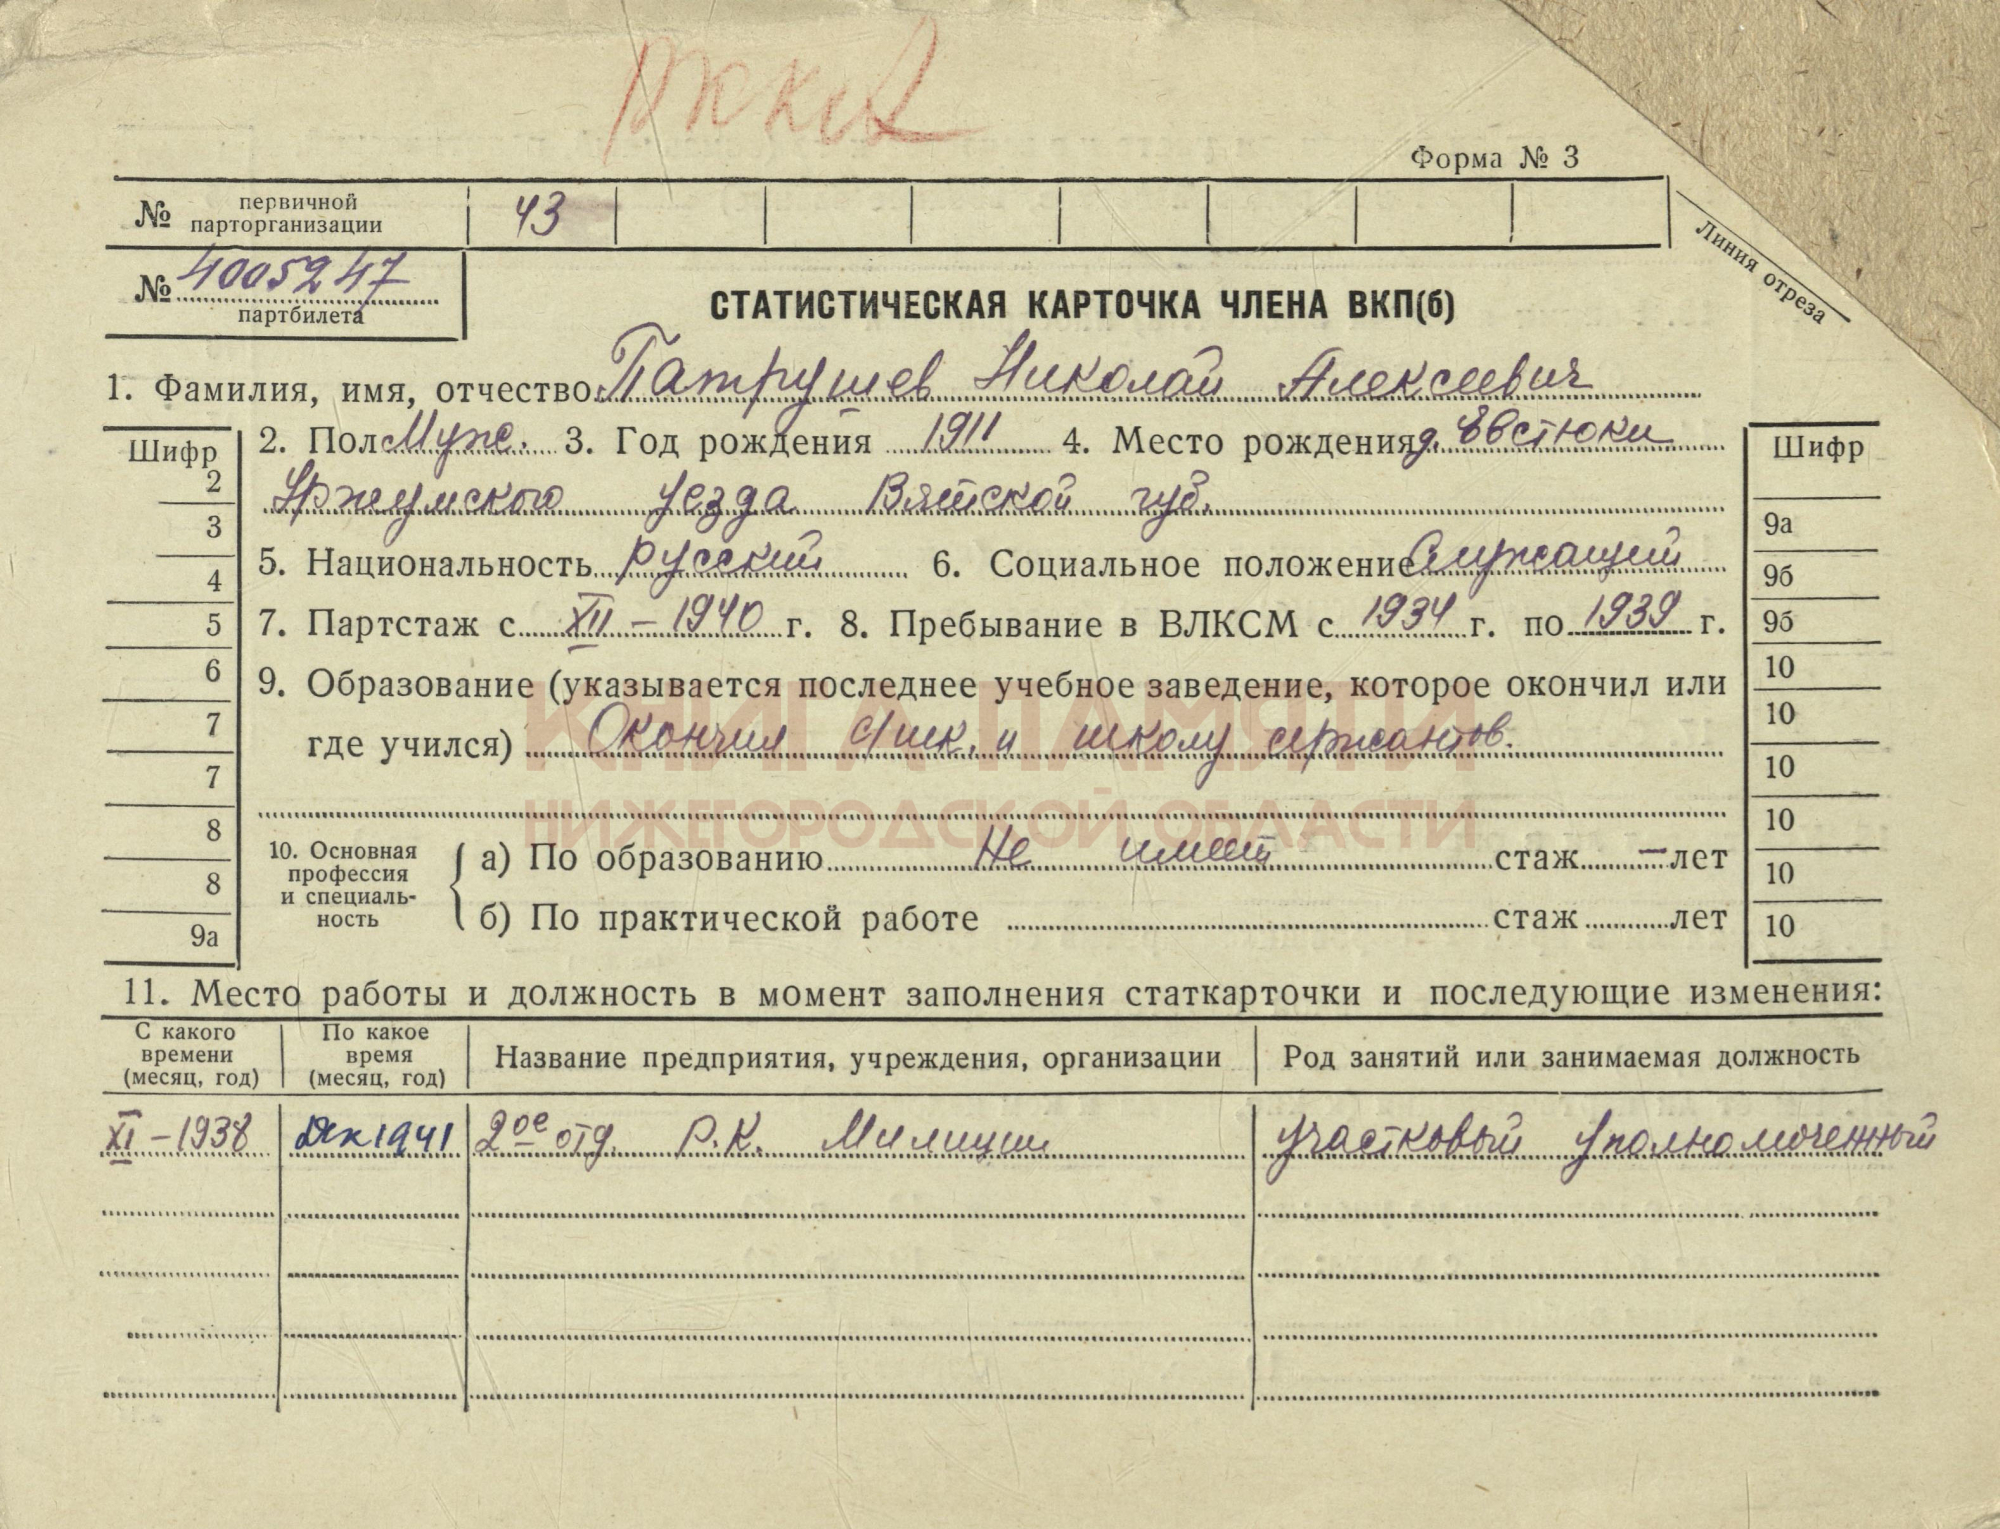 Форма № 3
№ первичной парторганизации 43
Линия отреза
№ 4005247
партбилета
СТАТИСТИЧЕСКАЯ КАРТОЧКА ЧЛЕНА ВКП(б)
1. Фамилия, имя, отчество Патрушев Николай Алексеевич
Шифр 2. Пол Муж. 3. Год рождения 1911 4. Место рождения д. Евстюки Шифр
2 Уржумского уезда Вятской губ.
3 9а
4 5. Национальность русский 6. Социальное положение Служащий 9б
5 7. Партстаж с XII – 1940 г. 8. Пребывание в ВЛКСМ с 1934 г. по 1939 г. 9б
6 9. Образование (указывается последнее учебное заведение, которое окончил или 10
7 где учился) Окончил 4 шк. и школу сержантов. 10
КНИГА ПАМЯТИ
7 10
НИЖЕГОРОДСКОЙ ОБЛАСТИ
8 10. Основная профессия и специальность а) По образованию Не имеет стаж – лет 10
8 10
9а б) По практической работе стаж лет 10
11. Место работы и должность в момент заполнения статкарточки и последующие изменения:
С какого времени (месяц, год) По какое время (месяц, год) Название предприятия, учреждения, организации Род занятий или занимаемая должность
XI – 1938 Дек 1941 2ое отд. Р.К. Милиции Участковый Уполномоченный